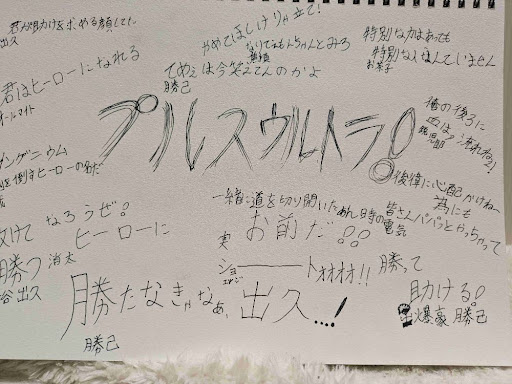 君が助けを求める顔してた
出久
君はヒーローになれる
オールマイト
インゲニウム
を倒すヒーローの名だ
やめてほしけりゃ立て!
なりてぇもんちゃんとみろ
てめぇは今笑えてんのかよ
勝己
特別な力はあっても
特別な人なんていません
お茶子
プルスウルトラ!
俺の後ろに
血は流れねぇ!
鋭児郎
後輩に心配かけねー
為にも
皆さんパパっとやっちゃって
電気
一緒に道を切り開いた
あん時の
お前だ!!
実
ショ――――トォオオオ!!
なろうぜ!
ヒーローに
負けて
勝つ
消太
谷出久
勝たなきゃなぁ、出久...!
勝己
勝って
助ける!
爆豪 勝己